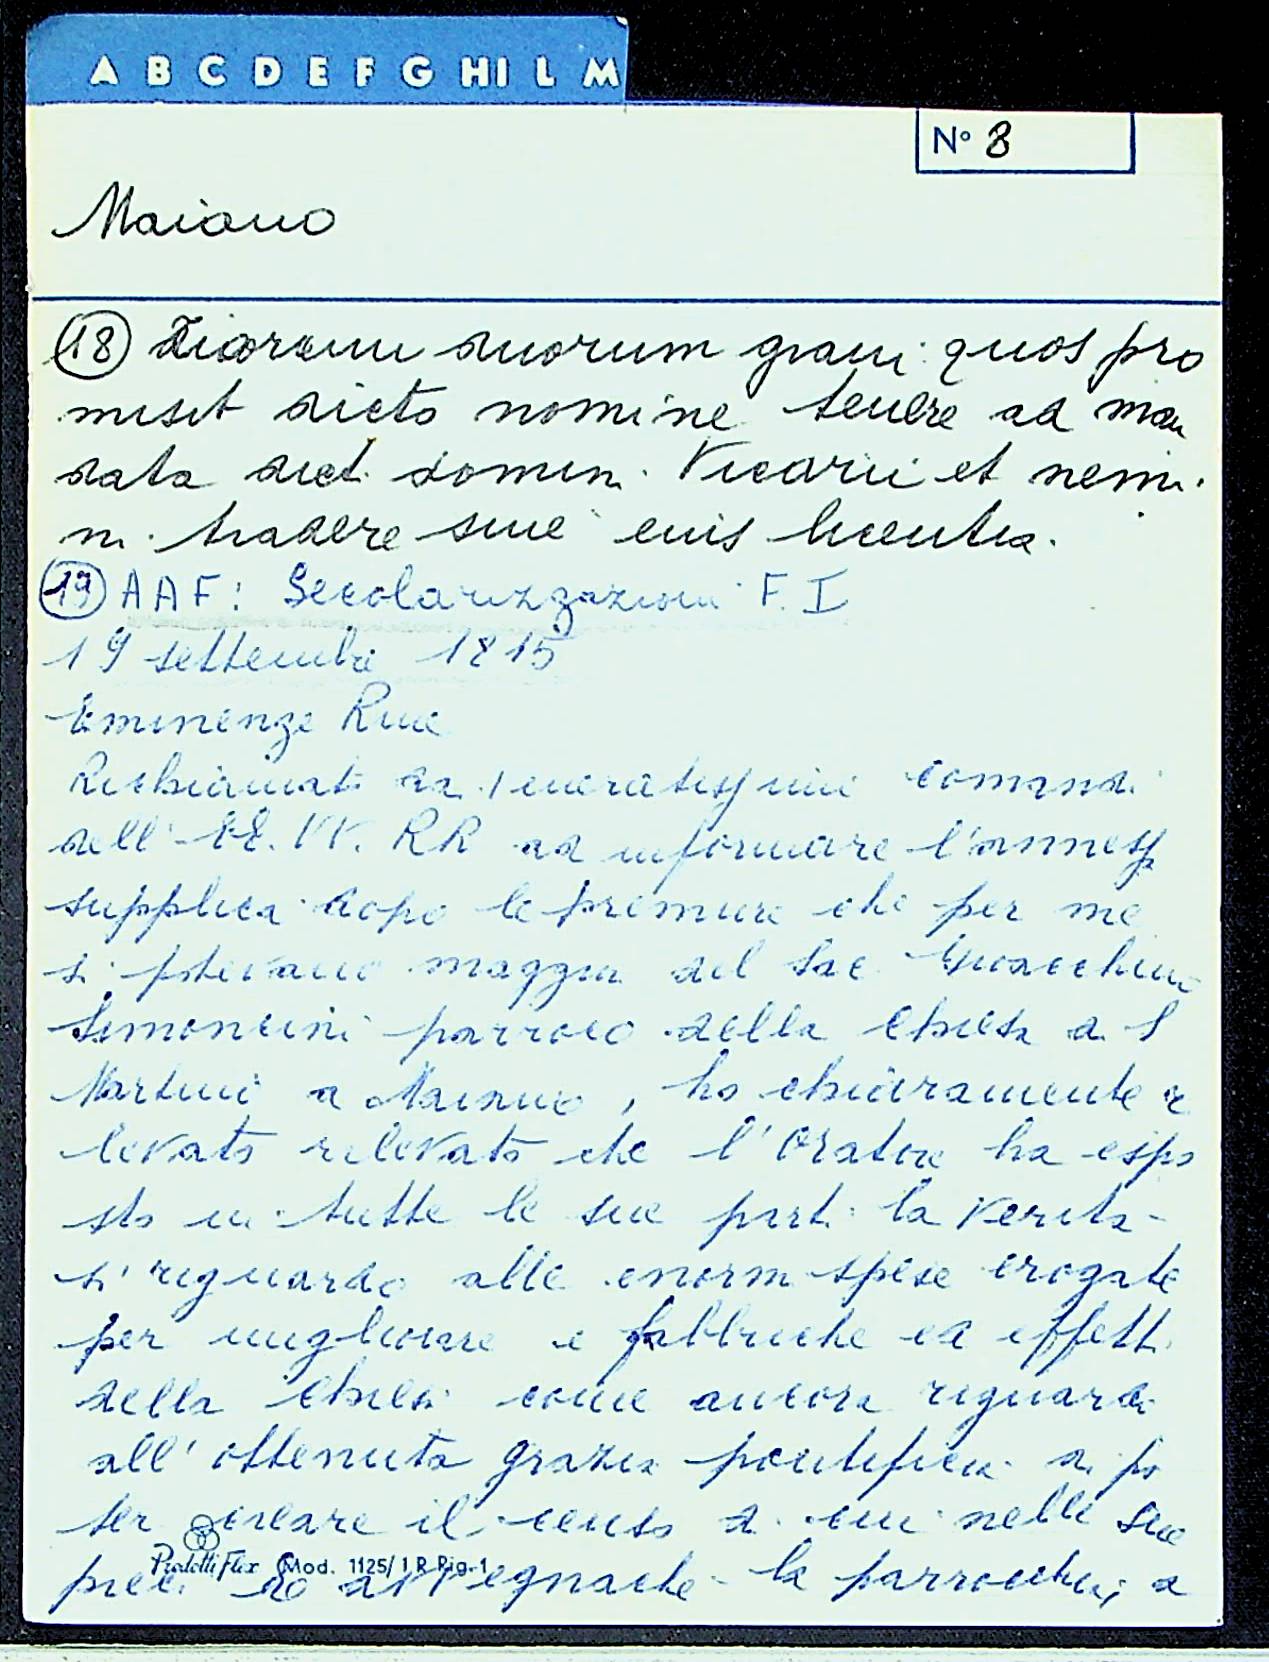 A B C D E F G HI L M
N° 8
Maiano
(18) duorum grani: quos pro
misit dicto nomine tenere ad man
data dict. domin. Vicarii et nemi-
ni. tradere sine eius licentia.
(19) AAF: Secolarizzazioni F. I
19 settembre 1815
Eminenze Rme
Richiamato da veneratissimi comandi
dell'EE. VV. RR ad informare l'annessa
supplica dopo le premure che per me
si potevano maggiri del Sac. Gioacchino
Simoncini parroco della Chiesa di S
Martino a Maiano, ho chiaramente ri
levato rilevato che l'Oratore ha espo
sto in tutte le sue parti la verità -
si riguardo alle enormi spese erogate
per migliorare e fabbriche ed effetti
della Chiesa come ancora riguardo
all'ottenuta grazia pontificia di po
ter creare il censo di cui nelle sue
preci
la parrocchia; a
Prodotti Flex Mod. 1125/1 R Rig-1